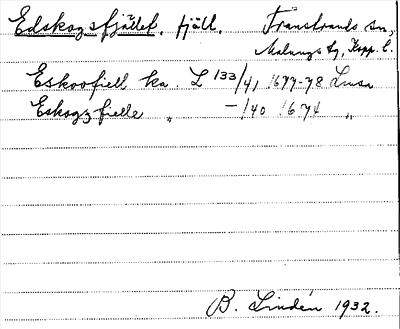 Edskogsfjället. fjäll. Transtrands sn,
Malungs tg, Kopp. l.
Eskoofiell ka. L 133/41 1677-78 Lmsa
Eskogzfielle " —/40 1674 "
B. Lindén 1932.